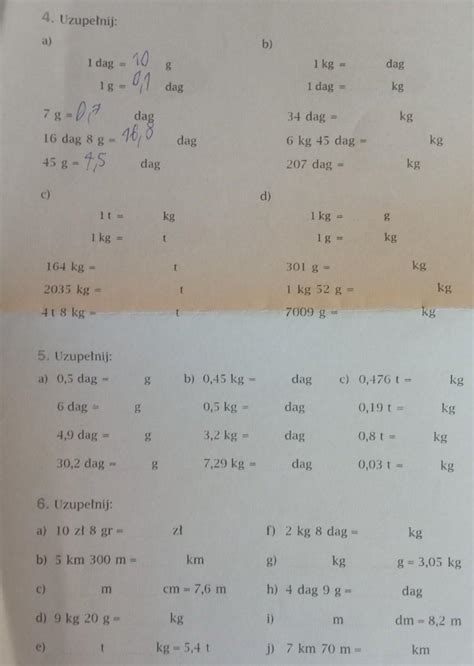 4. Uzupełnij:
a) b)
1 dag = 10 g 1 kg = dag
1 g = 0,1 dag 1 dag = kg
7 g = 0,7 dag 34 dag = kg
16 dag 8 g = 16,8 dag 6 kg 45 dag = kg
45 g = 4,5 dag 207 dag = kg
c) d)
1 t = kg 1 kg = g
1 kg = t 1 g = kg
164 kg = t 301 g = kg
2035 kg = t 1 kg 52 g = kg
4 t 8 kg = t 7009 g = kg
5. Uzupełnij:
a) 0,5 dag = g b) 0,45 kg = dag c) 0,476 t = kg
6 dag = g 0,5 kg = dag 0,19 t = kg
4,9 dag = g 3,2 kg = dag 0,8 t = kg
30,2 dag = g 7,29 kg = dag 0,03 t = kg
6. Uzupełnij:
a) 10 zł 8 gr = zł f) 2 kg 8 dag = kg
b) 5 km 300 m = km g) kg g = 3,05 kg
c) m cm = 7,6 m h) 4 dag 9 g = dag
d) 9 kg 20 g = kg i) m dm = 8,2 m
e) t kg = 5,4 t j) 7 km 70 m = km